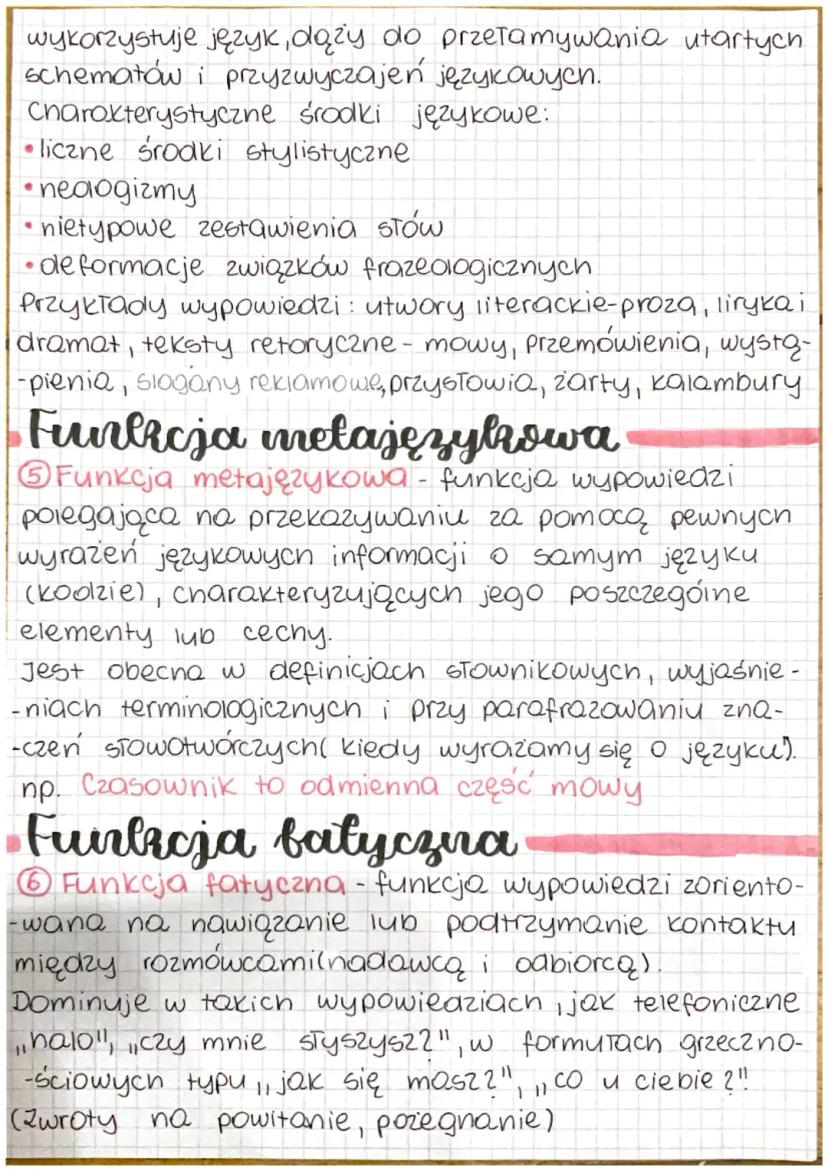 wykorzystuje język, dąży do przełamywania utartych
schematów i przyzwyczajeń językowych.
Charakterystyczne środki językowe:
• liczne środki stylistyczne
• neologizmy
• nietypowe zestawienia słów
• deformacje związków frazeologicznych
Przykłady wypowiedzi: utwory literackie-proza, liryka i
dramat, teksty retoryczne - mowy, przemówienia, wystą-
-pienia, slogany reklamowe, przysłowia, żarty, kalambury
Funkcja metajęzykowa
⑤ Funkcja metajęzykowa - funkcja wypowiedzi
polegająca na przekazywaniu za pomocą pewnych
wyrażeń językowych informacji o samym języku
(kodzie), charakteryzujących jego poszczególne
elementy lub cechy.
Jest obecna w definicjach słownikowych, wyjaśnie-
-niach terminologicznych i przy parafrazowaniu zna-
-czeń słowotwórczych( kiedy wyrażamy się o języku).
np. Czasownik to odmienna część mowy
Funkcja fatyczna
⑥ Funkcja fatyczna - funkcja wypowiedzi zoriento-
-wana na nawiązanie lub podtrzymanie kontaktu
między rozmówcami(nadawcą i odbiorcą).
Dominuje w takich wypowiedziach, jak telefoniczne
„halo", „czy mnie słyszysz?", w formułach grzeczno-
-ściowych typu „jak się masz?", „co u ciebie?"
(Zwroty na powitanie, pożegnanie)